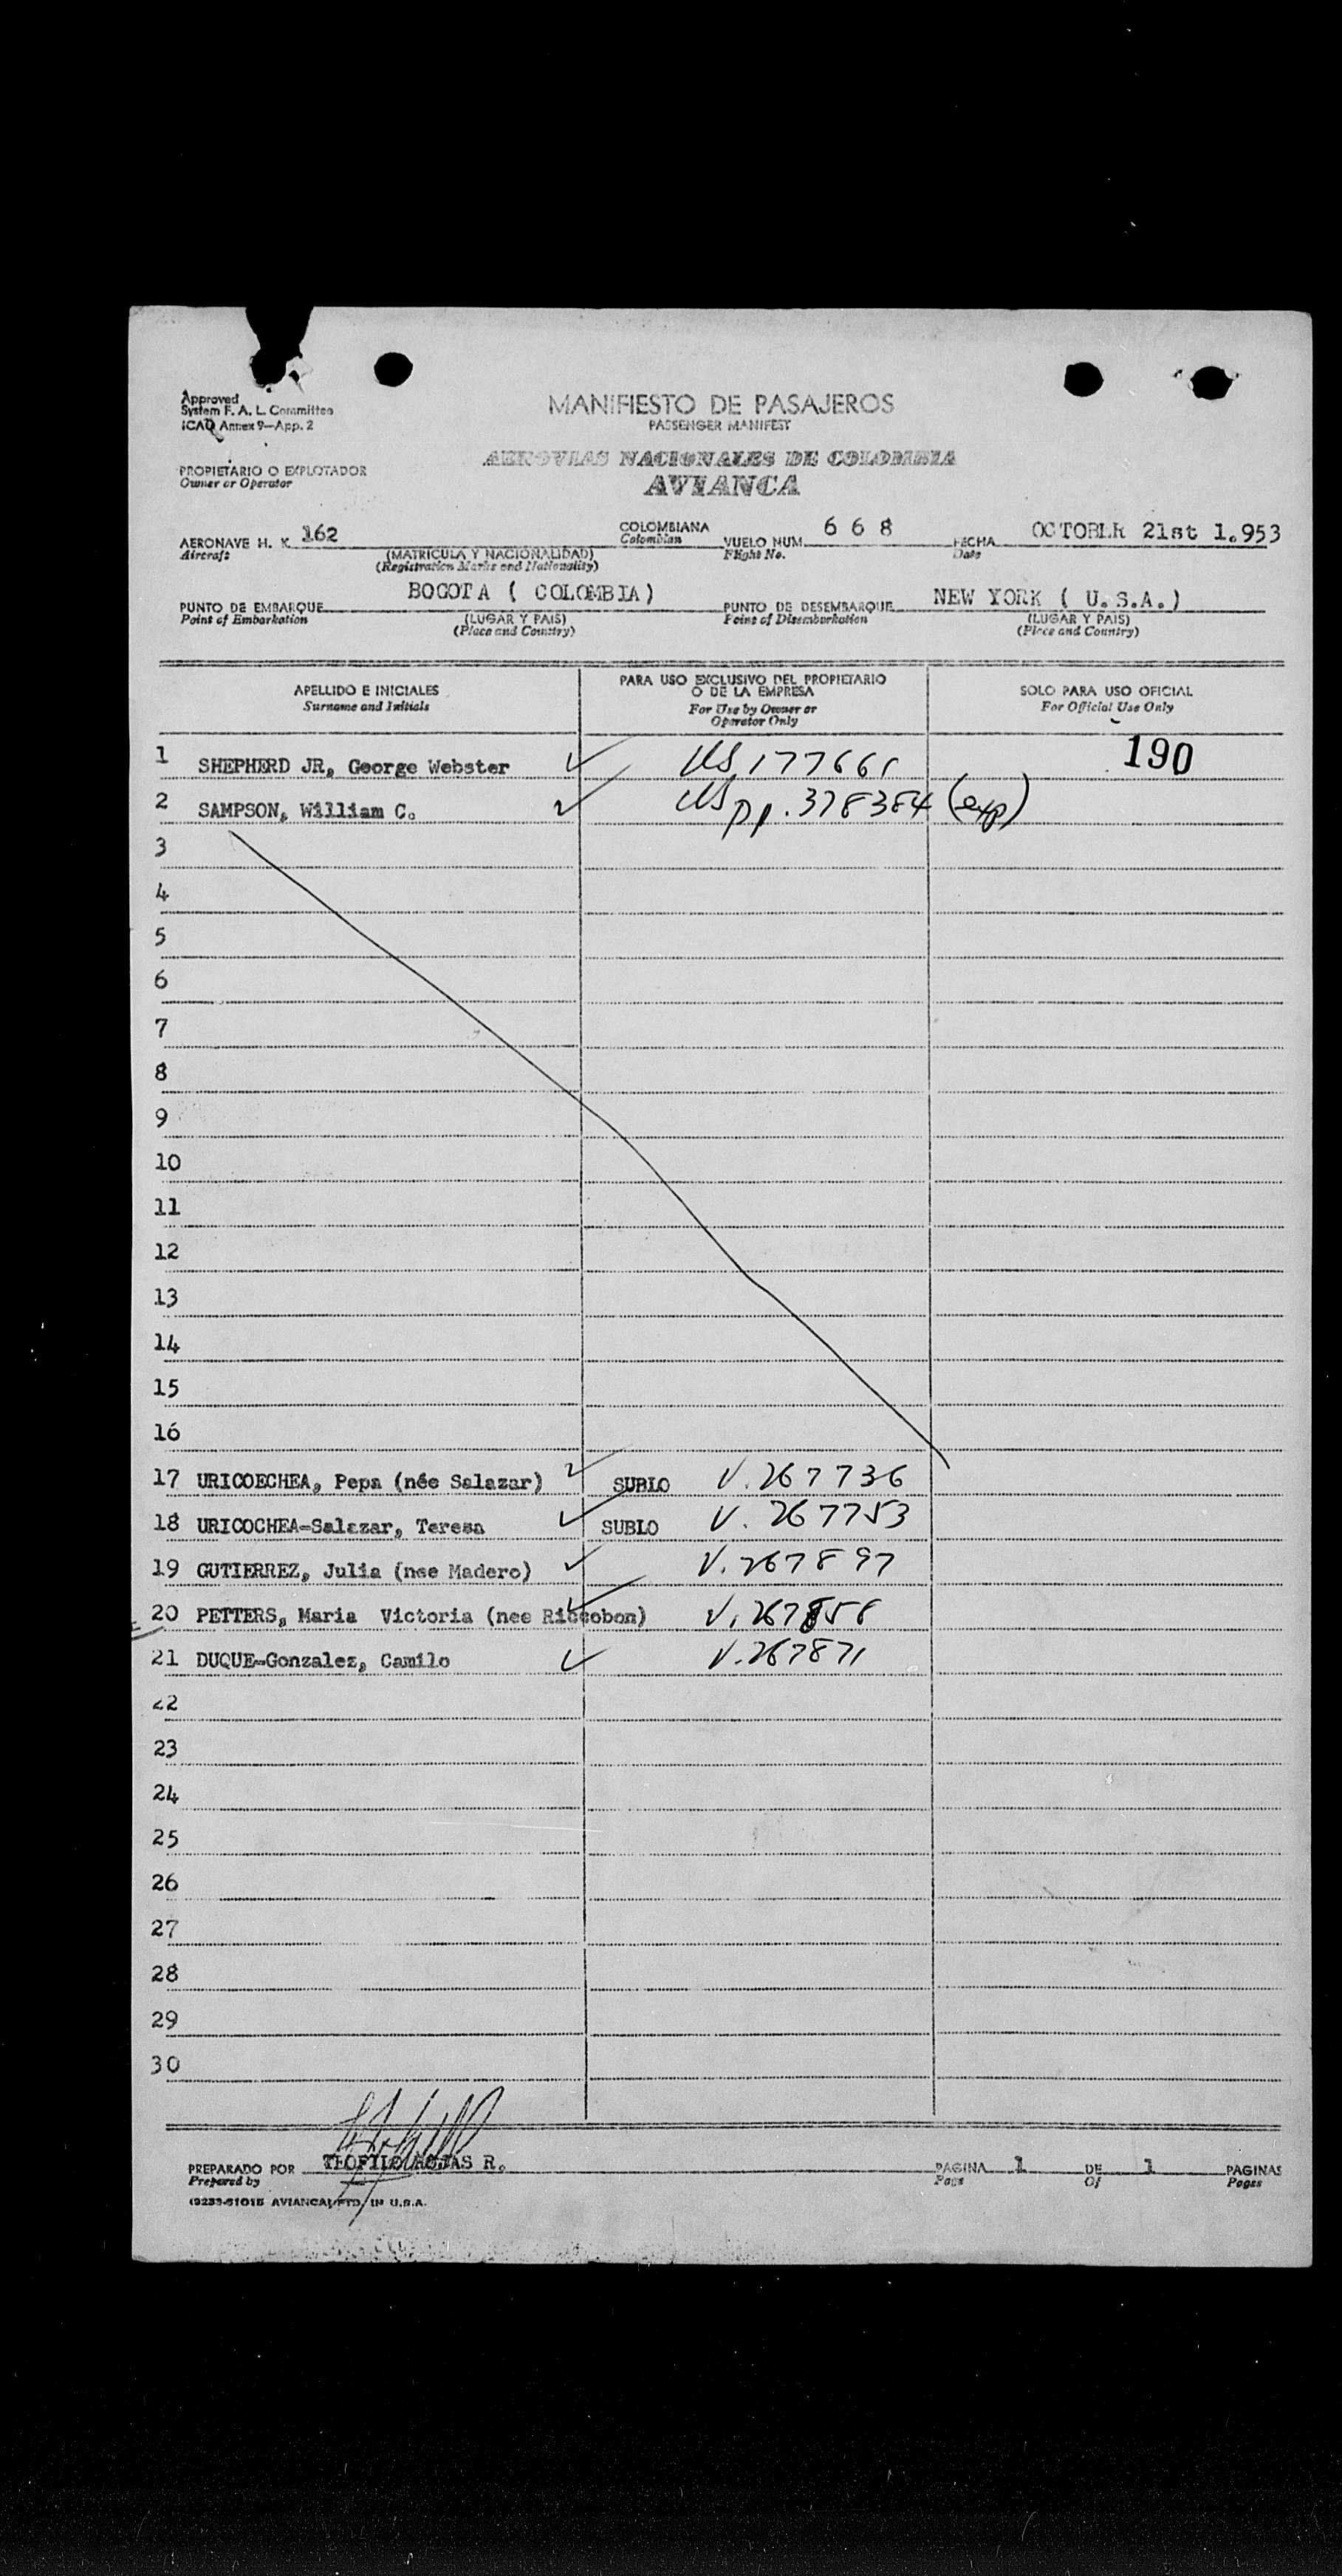 Approved
System F. A. L. Committee
ICAO Annex 9—App. 2
MANIFIESTO DE PASAJEROS
PASSENGER MANIFEST
PROPIETARIO O EXPLOTADOR
Owner or Operator
AEROVIAS NACIONALES DE COLOMBIA
AVIANCA
AERONAVE H. K. 162
Aircraft
(MATRICULA Y NACIONALIDAD)
(Registration Marks and Nationality)
COLOMBIANA
Colombian
VUELO NUM. 6 6 8
Flight No.
FECHA OCTOBER 21st 1.953
Date
PUNTO DE EMBARQUE BOGOTA ( COLOMBIA)
Point of Embarkation
(LUGAR Y PAIS)
(Place and Country)
PUNTO DE DESEMBARQUE NEW YORK ( U.S.A.)
Point of Disembarkation
(LUGAR Y PAIS)
(Place and Country)
APELLIDO E INICIALES
Surname and Initials
PARA USO EXCLUSIVO DEL PROPIETARIO
O DE LA EMPRESA
For Use by Owner or
Operator Only
SOLO PARA USO OFICIAL
For Official Use Only
1 SHEPHERD JR, George Webster US 177661 190
2 SAMPSON, William C. US pp. 378384 (exp)
3
4
5
6
7
8
9
10
11
12
13
14
15
16
17 URICOECHEA, Pepa (née Salazar) SUBLO V. 267736
18 URICOCHEA-Salazar, Teresa SUBLO V. 267753
19 GUTIERREZ, Julia (nee Madero) V. 267897
20 PETTERS, Maria Victoria (nee Riccobon) V. 267858
21 DUQUE-Gonzalez, Camilo V. 267871
22
23
24
25
26
27
28
29
30
PREPARADO POR TEOFILO ROJAS R.
Prepared by
PAGINA 1 DE 1 PAGINAS
Page Of Pages
AVIANCA, PTD. IN U.S.A.